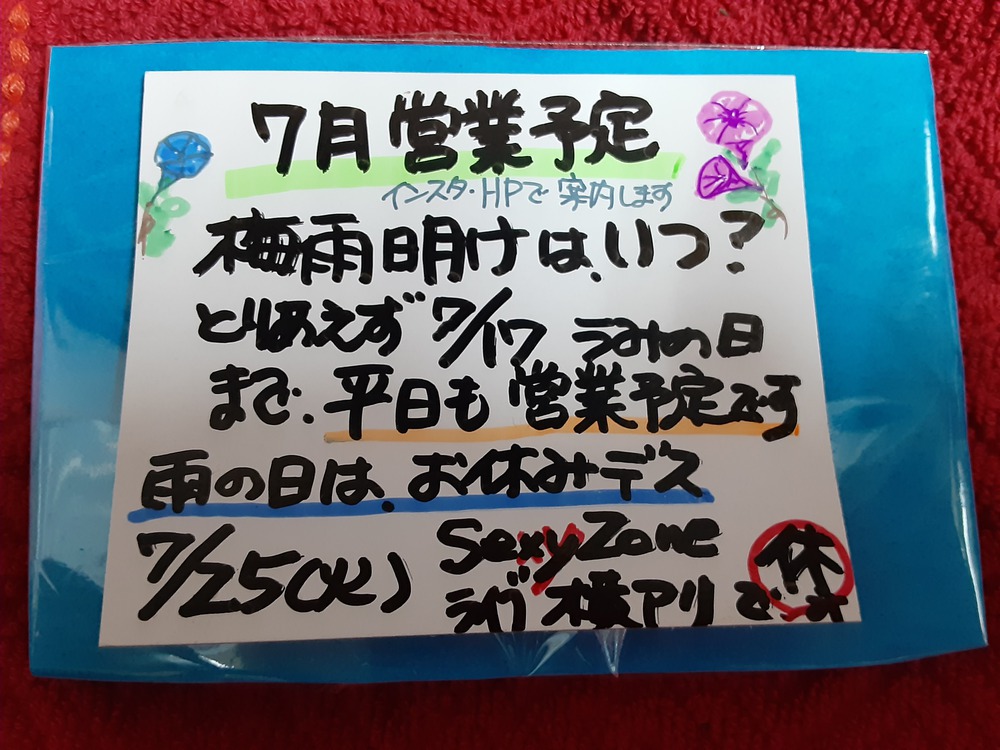 7月営業予定
インスタ・HPで案内します
梅雨明けは、いつ？
とりあえず 7/17 うみの日
まで、平日も営業予定です
雨の日は、お休みデス
7/25(火) Sexy Zone
ライブ 横アリ で 休 です